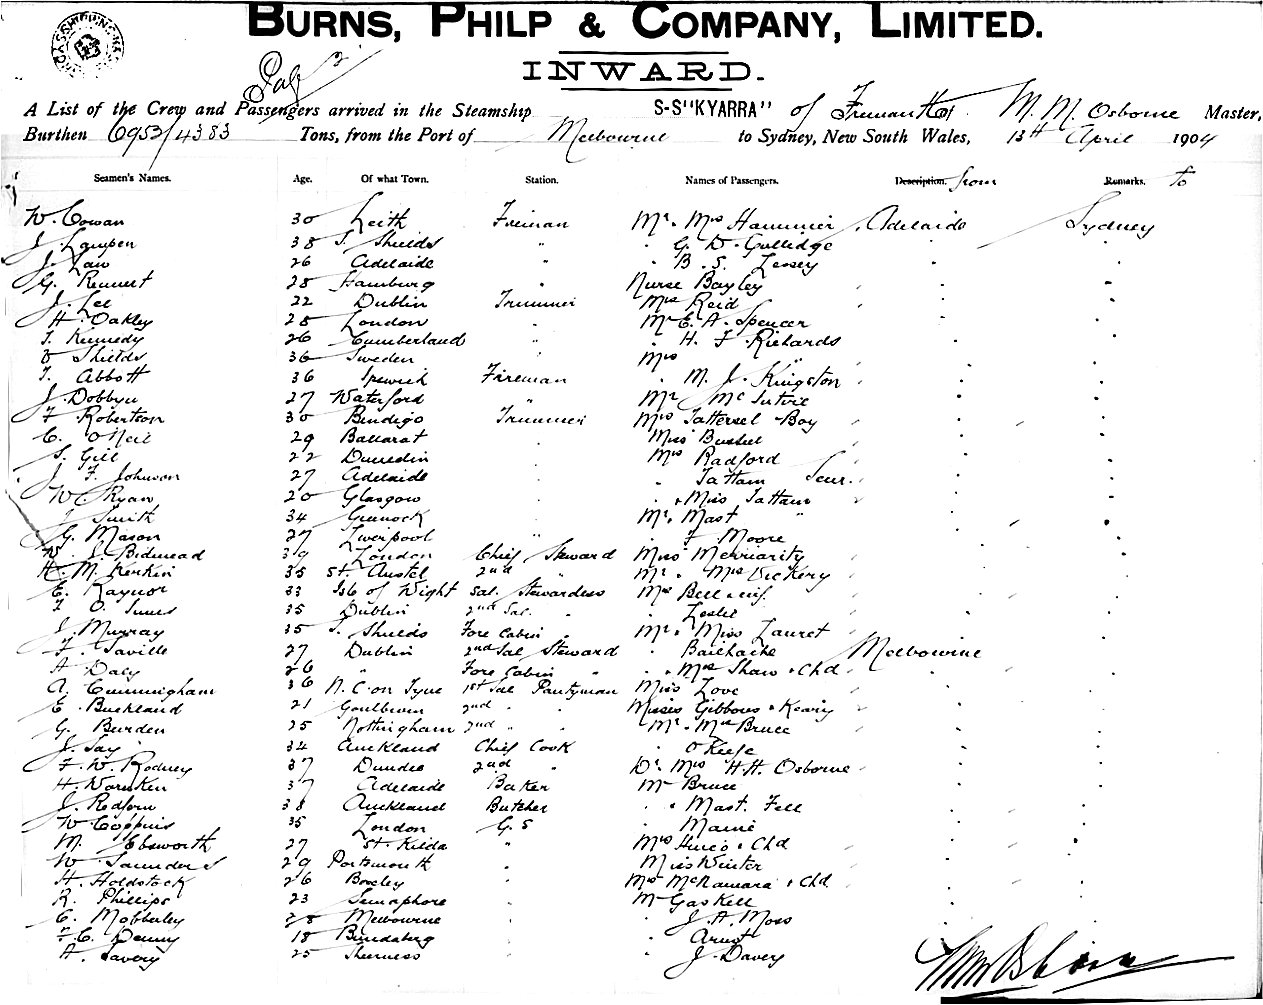 BURNS, PHILP & COMPANY, LIMITED.
INWARD.
A List of the Crew and Passengers arrived in the Steamship S-S"KYARRA" of Fremantle M. M. Osborne Master,
Burthen 6953/4383 Tons, from the Port of Melbourne to Sydney, New South Wales, 13th April 1904
Seamen's Names. Age. Of what Town. Station. Names of Passengers. Description. from Remarks. To
W. Cowan 30 Leith Fireman Mr. Mrs Hammer Adelaide Sydney
J. Lampen 38 S. Shields " G. W. Gulledge
J. Law 26 Adelaide " B. S. Lessey
G. Rennert 28 Hamburg Nurse Bayley
J. Lee 22 Dublin Trimmer Mrs Reid
H. Oakley 28 London Mr E. A. Spencer
T. Kennedy 26 Cumberland " H. F. Richards
Shields 36 Sweden Mrs "
T. Abbott 36 Ipswich Fireman M. J. Kingston
J. Dobbyn 27 Waterford " Mr Mc
F. Robertson 30 Bendigo Trimmer Mrs Tattersel Boy
C. O'Neil 29 Ballarat Miss Bushel
S. Gill 22 Dunedin Mrs Radford
J. F. Johnson 27 Adelaide Tatham Senr.
W. Ryan 20 Glasgow Miss Tatham
Smith 34 Greenock Mr. Mast "
G. Mason 27 Liverpool " F. Moore
W. J. Bidmead 39 London Chief Steward Miss Merriarity
H. M. Kerkin 35 St. Austel 2nd " Mr. Mrs Vickery
E. Raynor 33 Isle of Wight Sal. Stewardess Mrs Bell & inf.
F. O. Innes 35 Dublin 2nd Sal. " Leslie
J. Murray 35 S. Shields Fore Cabin " Mr. Miss Lauret
F. Saville 27 Dublin 2nd Sal Steward Bailhache Melbourne
A. Daly 26 " Fore Cabin " Mrs Shaw & Chd
A. Cunningham 36 N. C on Tyne 1st Sal Pantryman Miss Love
E. Buckland 21 Goulburn 2nd " " Misses Gibbons & Keary
G. Burden 25 Nottingham 2nd " " Mr. Mrs Bruce
J. Jay 34 Auckland Chief Cook O'Keefe
F. W. Rodney 37 Dundee 2nd " Dr. Mrs H. H. Osborne
H. Warnken 37 Adelaide Baker Mr Bruce
J. Redfern 38 Auckland Butcher Mast. Fell
W. Coppins 35 London G. S Maine
M. Ebsworth 27 St. Kilda " Mrs Hines & Chd
W. Saunders 29 Portsmouth Miss Winter
H. Holdstock 26 Boxley Mrs McNamara & Chd
R. Phillips 23 Semaphore Mr Gaskell
C. Mobberley 28 Melbourne J. A. Moss
F. C. Denny 18 Bundaberg
A. Savery 25 Sheerness J. Davey